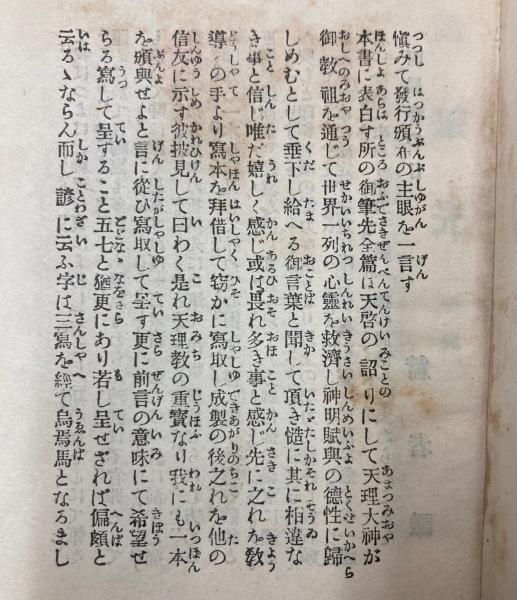 愼みて發行頒布の主眼を一言す
本書に表白す所の御筆先全篇は天啓の詔りにして天理大神が
御教祖を通じて世界一列の心靈を救濟し神明賦與の德性に歸
しめむとして垂下し給へる御言葉と聞して頂き慥に其に相違な
き事と信じ唯だ嬉しく感じ或は畏れ多き事と感じ先に之れを敎
導〻の手より寫本を拜借して窃かに寫取し成製の後之れを他の
信友に示す彼披見して曰わく是れ天理敎の重寶なり我にも一本
を頒與せよと言に從ひ寫取して呈す更に前言の意味にて希望せ
らる寫して呈すること五七と猶更にあり若し呈せざれば偏頗と
云るゝならん而し諺に云ふ字は三寫を經て烏焉馬となるまし